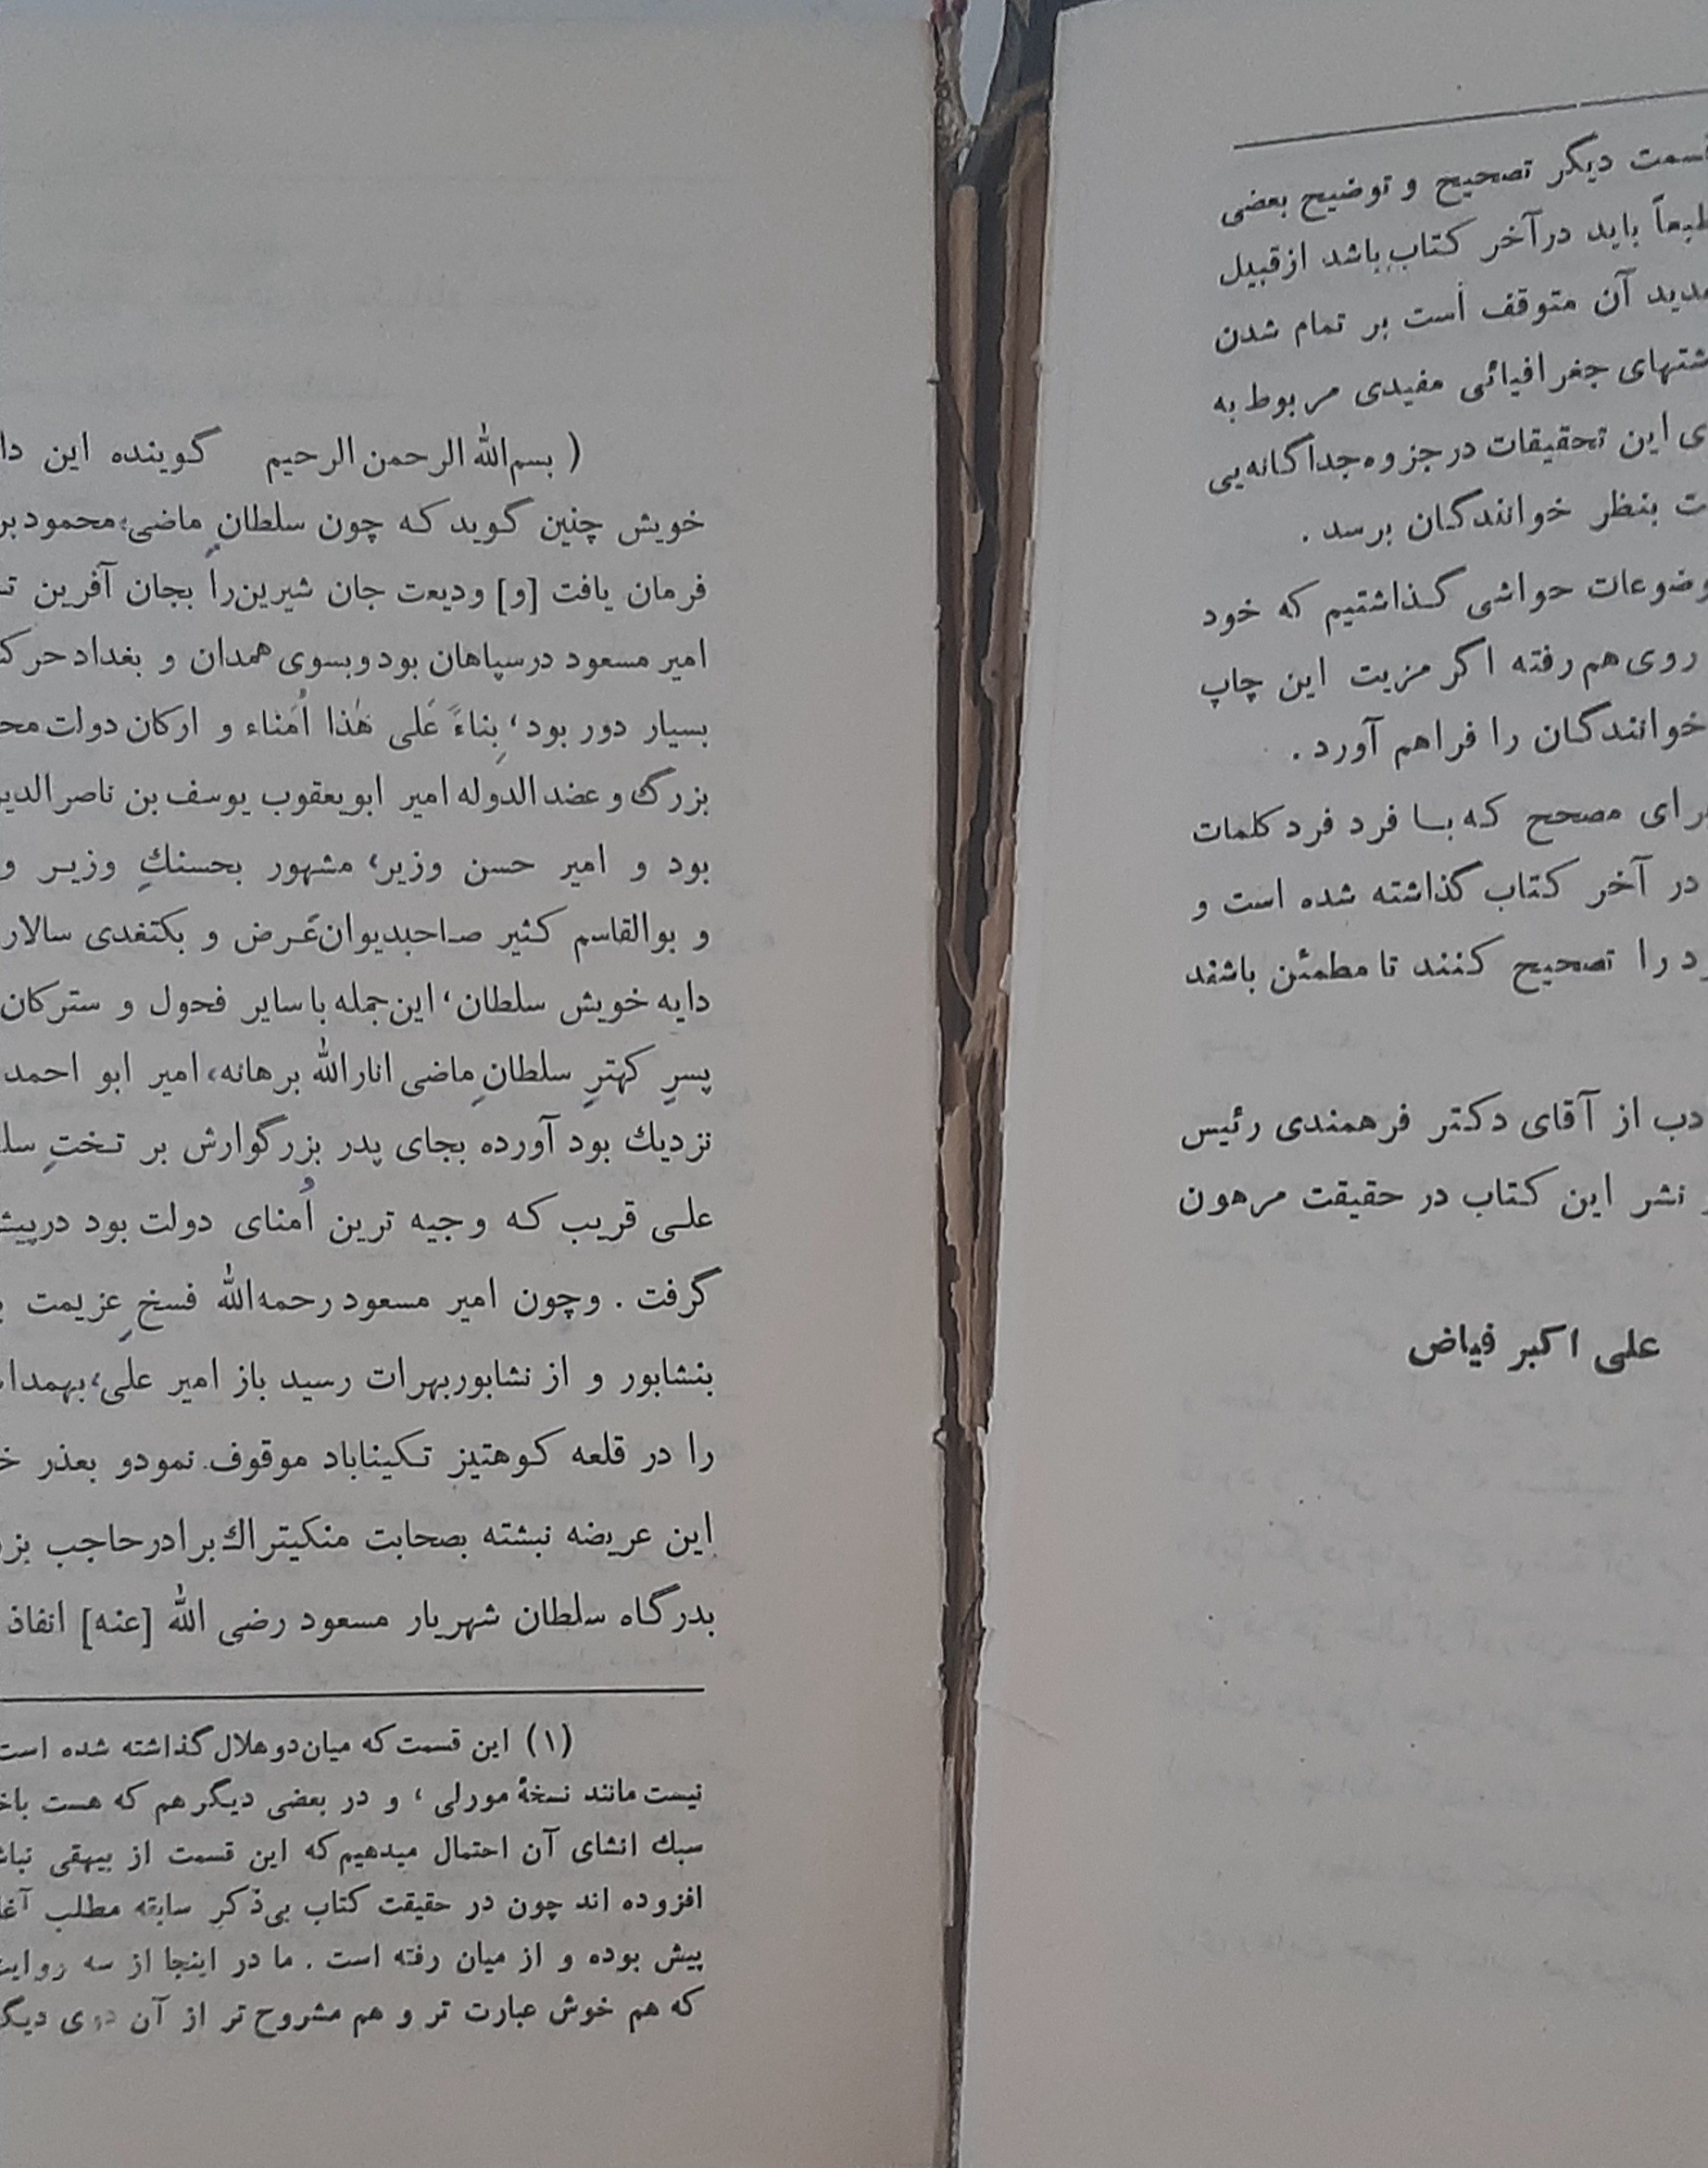 قسمت دیگر تصحیح و توضیح بعضی
طبعاً باید در آخر کتاب باشد از قبیل
آن متوقف است بر تمام شدن
جغرافیائی مفیدی مربوط به
این تحقیقات در جزوه جداگانه‌یی
بنظر خوانندگان برسد .
حواشی گذاشتیم که خود
روی هم رفته اگر مزیت این چاپ
خوانندگان را فراهم آورد .
مصحح که با فرد فرد کلمات
در آخر کتاب گذاشته شده است و
را تصحیح کنند تا مطمئن باشند
از آقای دکتر فرهمندی رئیس
نشر این کتاب در حقیقت مرهون
علی اکبر فیاض
( بسم‌الله الرحمن الرحیم گوینده این
خویش چنین گوید که چون سلطانِ ماضی، محمود
فرمان یافت [و] ودیعت جان شیرین را بجان آفرین
امیر مسعود در سپاهان بود و بسوی همدان و بغداد
بسیار دور بود، بِناءً عَلی هٰذا اُمَناء و ارکان دولت
بزرگ و عضدالدوله امیر ابویعقوب یوسف بن ناصر
بود و امیر حسن وزیر، مشهور بحسنكِ وزیر و
و بوالقاسم کثیر صاحبدیوان عَرض و بکتغدی سالار
دایه خویش سلطان، این جمله با سایر فحول و سترکان
پسرِ کهترِ سلطانِ ماضی انارالله برهانه، امیر ابو احمد
نزدیك بود آورده بجای پدر بزرگوارش بر تختِ
علی قریب که وجیه ترین اُمنای دولت بود
گرفت . و چون امیر مسعود رحمه‌الله فسخِ عزیمت
بنشابور و از نشابور بهرات رسید باز امیر علی،
را در قلعه کوهتیز تکیناباد موقوف نمود و بعذر
این عریضه نبشته بصحابت منکیتراك برادر حاجب
بدرگاه سلطان شهریار مسعود رضی الله [عنه] انفاذ
(۱) این قسمت که میان دو هلال گذاشته شده است
نیست مانند نسخهٔ مورلی ، و در بعضی دیگر هم که هست
سبك انشای آن احتمال میدهیم که این قسمت از بیهقی
افزوده اند چون در حقیقت کتاب بی‌ذکرِ سابقه مطلب
پیش بوده و از میان رفته است . ما در اینجا از سه
که هم خوش عبارت تر و هم مشروح تر از آن دوی